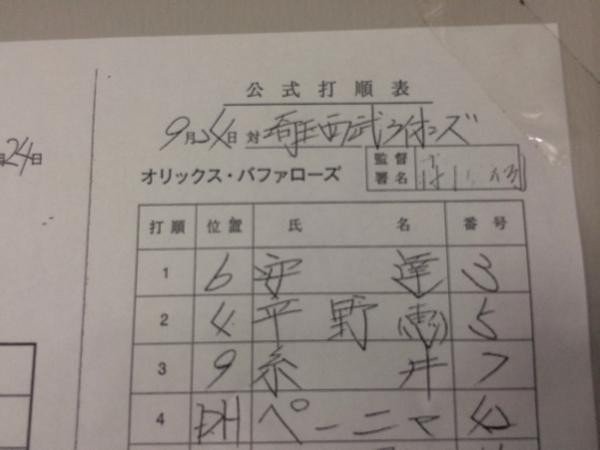 公式打順表
9月24日 対 埼玉西武ライオンズ
24日
オリックス・バファローズ 監督署名
打順 位置 氏名 番号
1 6 安達 3
2 4 平野(恵) 5
3 9 糸井 7
4 DH ペーニャ 42